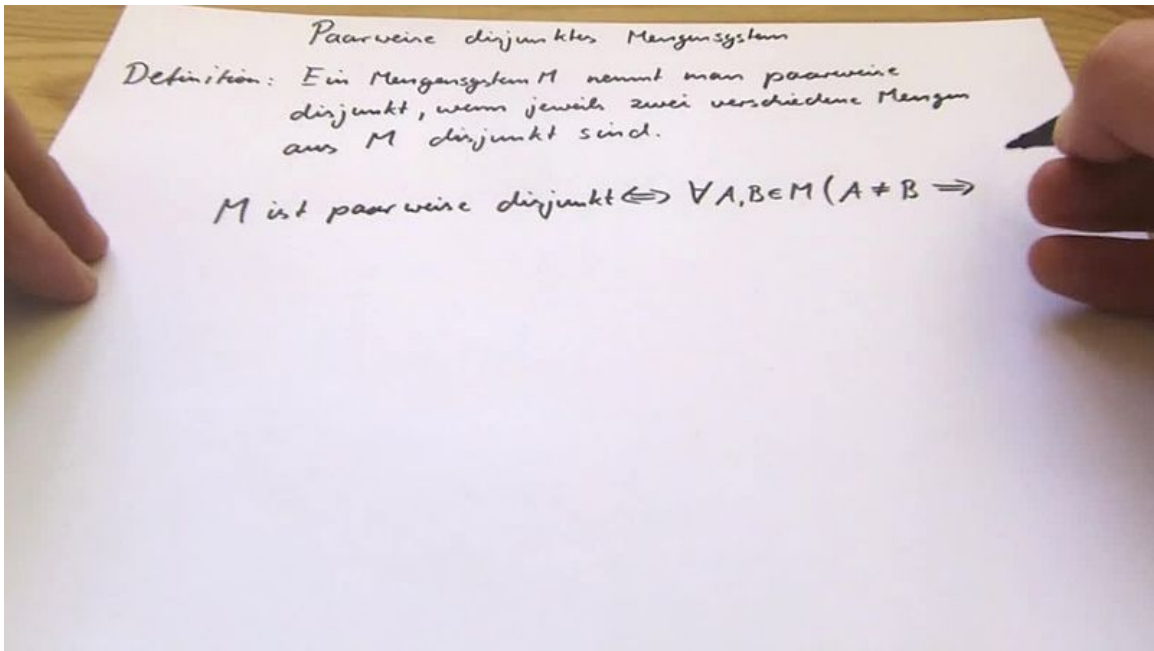 Paarweise disjunktes Mengensystem
Definition: Ein Mengensystem M nennt man paarweise
disjunkt, wenn jeweils zwei verschiedene Mengen
aus M disjunkt sind.
M ist paarweise disjunkt ⇔ ∀ A,B ∈ M ( A ≠ B ⇒